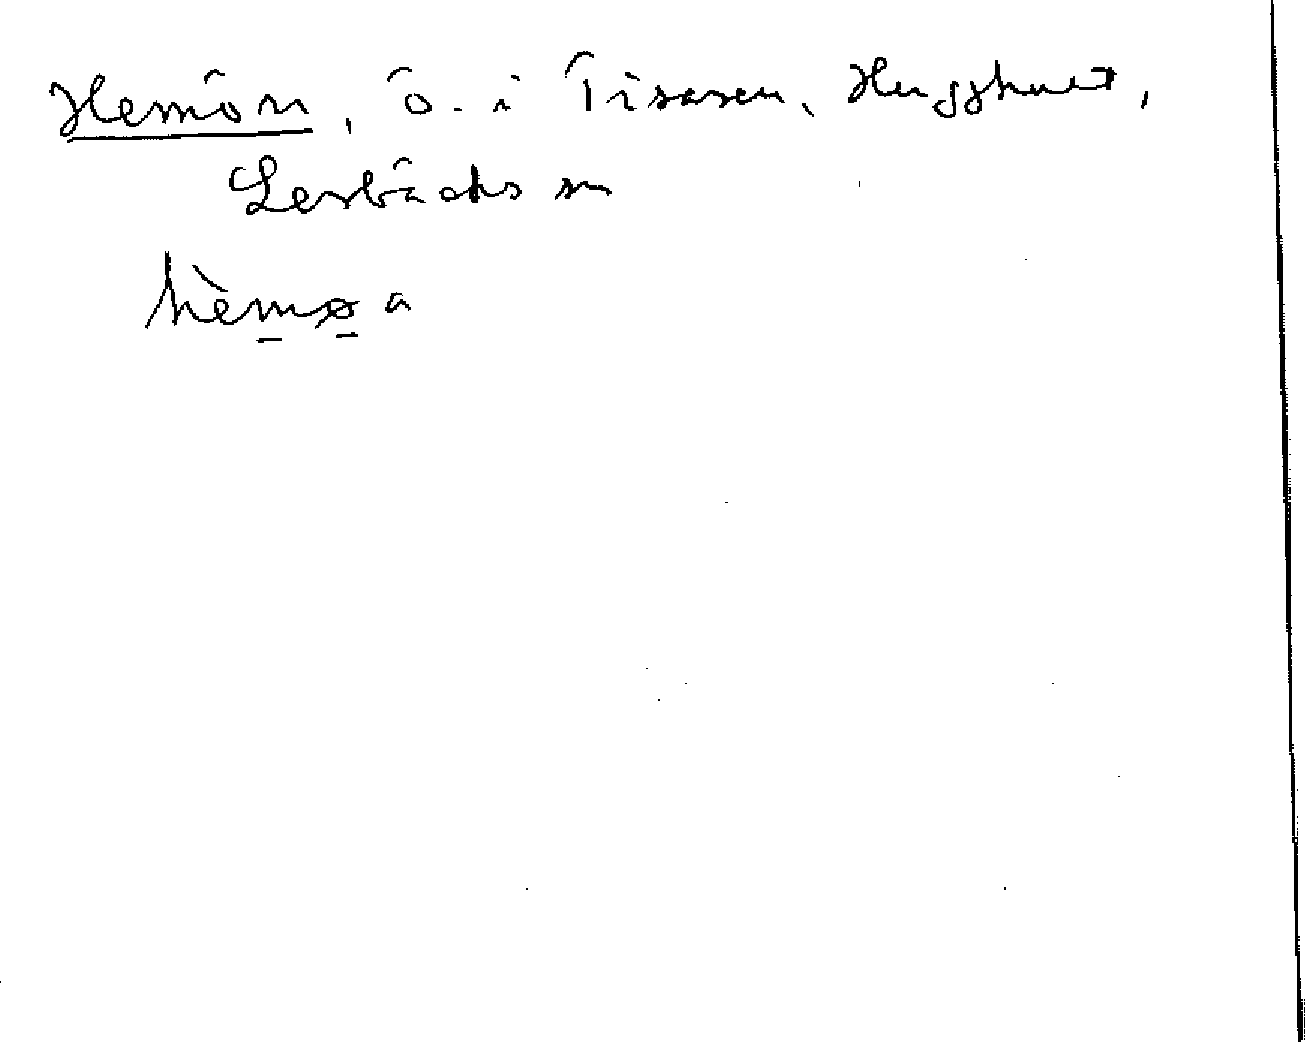 Hemön, ö. i Tisaren, Hugghult,
Lerbäcks sn
hèmøa